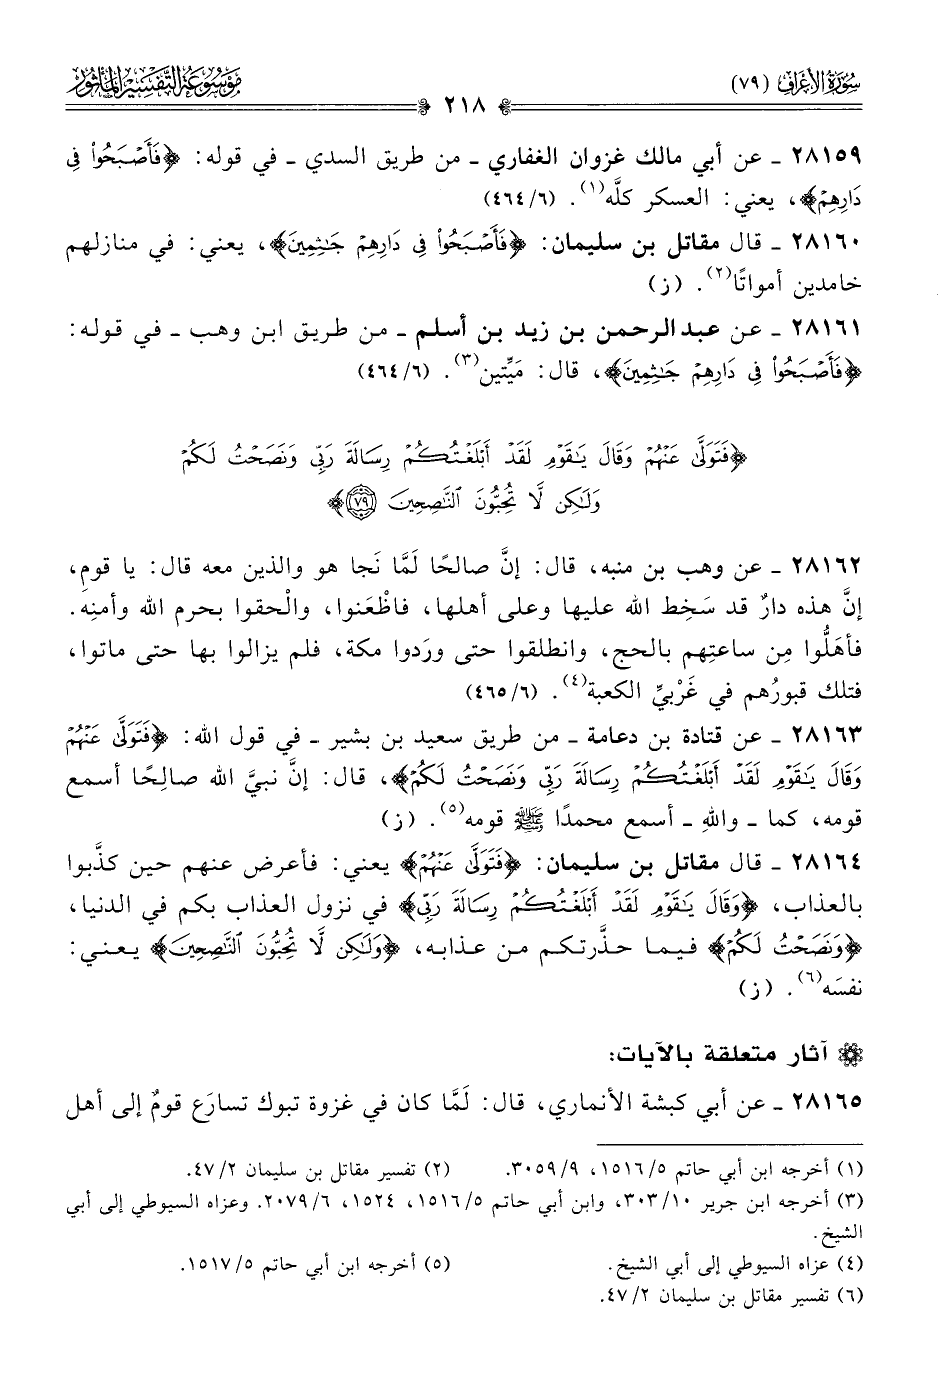 سُورَةُ الأَعْرَاف (٧٩)
مَوْسُوعَة التَّفْسِير المَأْثُور
٢١٨
٢٨١٥٩ ـ عن أبي مالك غزوان الغفاري ـ من طريق السدي ـ في قوله: ﴿فَأَصْبَحُوا۟ فِى
دَارِهِمْ﴾، يعني: العسكر كلَّه(١). (٤٦٤/٦)
٢٨١٦٠ ـ قال مقاتل بن سليمان: ﴿فَأَصْبَحُوا۟ فِى دَارِهِمْ جَـٰثِمِينَ﴾، يعني: في منازلهم
خامدين أمواتًا(٢). (ز)
٢٨١٦١ ـ عن عبد الرحمن بن زيد بن أسلم ـ من طريق ابن وهب ـ في قوله:
﴿فَأَصْبَحُوا۟ فِى دَارِهِمْ جَـٰثِمِينَ﴾، قال: مَيِّتين(٣). (٤٦٤/٦)
﴿فَتَوَلَّىٰ عَنْهُمْ وَقَالَ يَـٰقَوْمِ لَقَدْ أَبْلَغْتُكُمْ رِسَالَةَ رَبِّى وَنَصَحْتُ لَكُمْ
وَلَـٰكِن لَّا تُحِبُّونَ ٱلنَّـٰصِحِينَ ٧٩﴾
٢٨١٦٢ ـ عن وهب بن منبه، قال: إنَّ صالحًا لَمَّا نَجا هو والذين معه قال: يا قومِ،
إنَّ هذه دارٌ قد سَخِط الله عليها وعلى أهلها، فاظْعَنوا، والْحقوا بحرم الله وأمنِه.
فأهَلُّوا مِن ساعتِهم بالحج، وانطلقوا حتى ورَدوا مكة، فلم يزالوا بها حتى ماتوا،
فتلك قبورُهم في غَرْبيِّ الكعبة(٤). (٤٦٥/٦)
٢٨١٦٣ ـ عن قتادة بن دعامة ـ من طريق سعيد بن بشير ـ في قول الله: ﴿فَتَوَلَّىٰ عَنْهُمْ
وَقَالَ يَـٰقَوْمِ لَقَدْ أَبْلَغْتُكُمْ رِسَالَةَ رَبِّى وَنَصَحْتُ لَكُمْ﴾، قال: إنَّ نبيَّ الله صالِحًا أسمع
قومه، كما ـ واللهِ ـ أسمع محمدًا ﷺ قومه(٥). (ز)
٢٨١٦٤ ـ قال مقاتل بن سليمان: ﴿فَتَوَلَّىٰ عَنْهُمْ﴾ يعني: فأعرض عنهم حين كذَّبوا
بالعذاب، ﴿وَقَالَ يَـٰقَوْمِ لَقَدْ أَبْلَغْتُكُمْ رِسَالَةَ رَبِّى﴾ في نزول العذاب بكم في الدنيا،
﴿وَنَصَحْتُ لَكُمْ﴾ فيما حذَّرتكم من عذابه، ﴿وَلَـٰكِن لَّا تُحِبُّونَ ٱلنَّـٰصِحِينَ﴾ يعني:
نفسَه(٦). (ز)
آثار متعلقة بالآيات:
٢٨١٦٥ ـ عن أبي كبشة الأنماري، قال: لَمَّا كان في غزوة تبوك تسارَع قومٌ إلى أهل
(١) أخرجه ابن أبي حاتم ١٥١٦/٥، ٣٠٥٩/٩. (٢) تفسير مقاتل بن سليمان ٤٧/٢.
(٣) أخرجه ابن جرير ٣٠٣/١٠، وابن أبي حاتم ١٥١٦/٥، ١٥٢٤، ٢٠٧٩/٦. وعزاه السيوطي إلى أبي
الشيخ.
(٤) عزاه السيوطي إلى أبي الشيخ. (٥) أخرجه ابن أبي حاتم ١٥١٧/٥.
(٦) تفسير مقاتل بن سليمان ٤٧/٢.